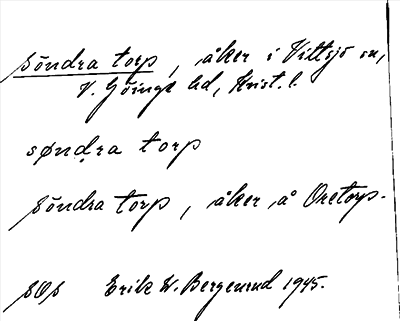 söndra torp, åker i Vittsjö sn,
V. Göinge hd, Krist. l.
søndra torp
söndra torp, åker å Oretorp.
sOs Erik W. Bergenrud 1945.